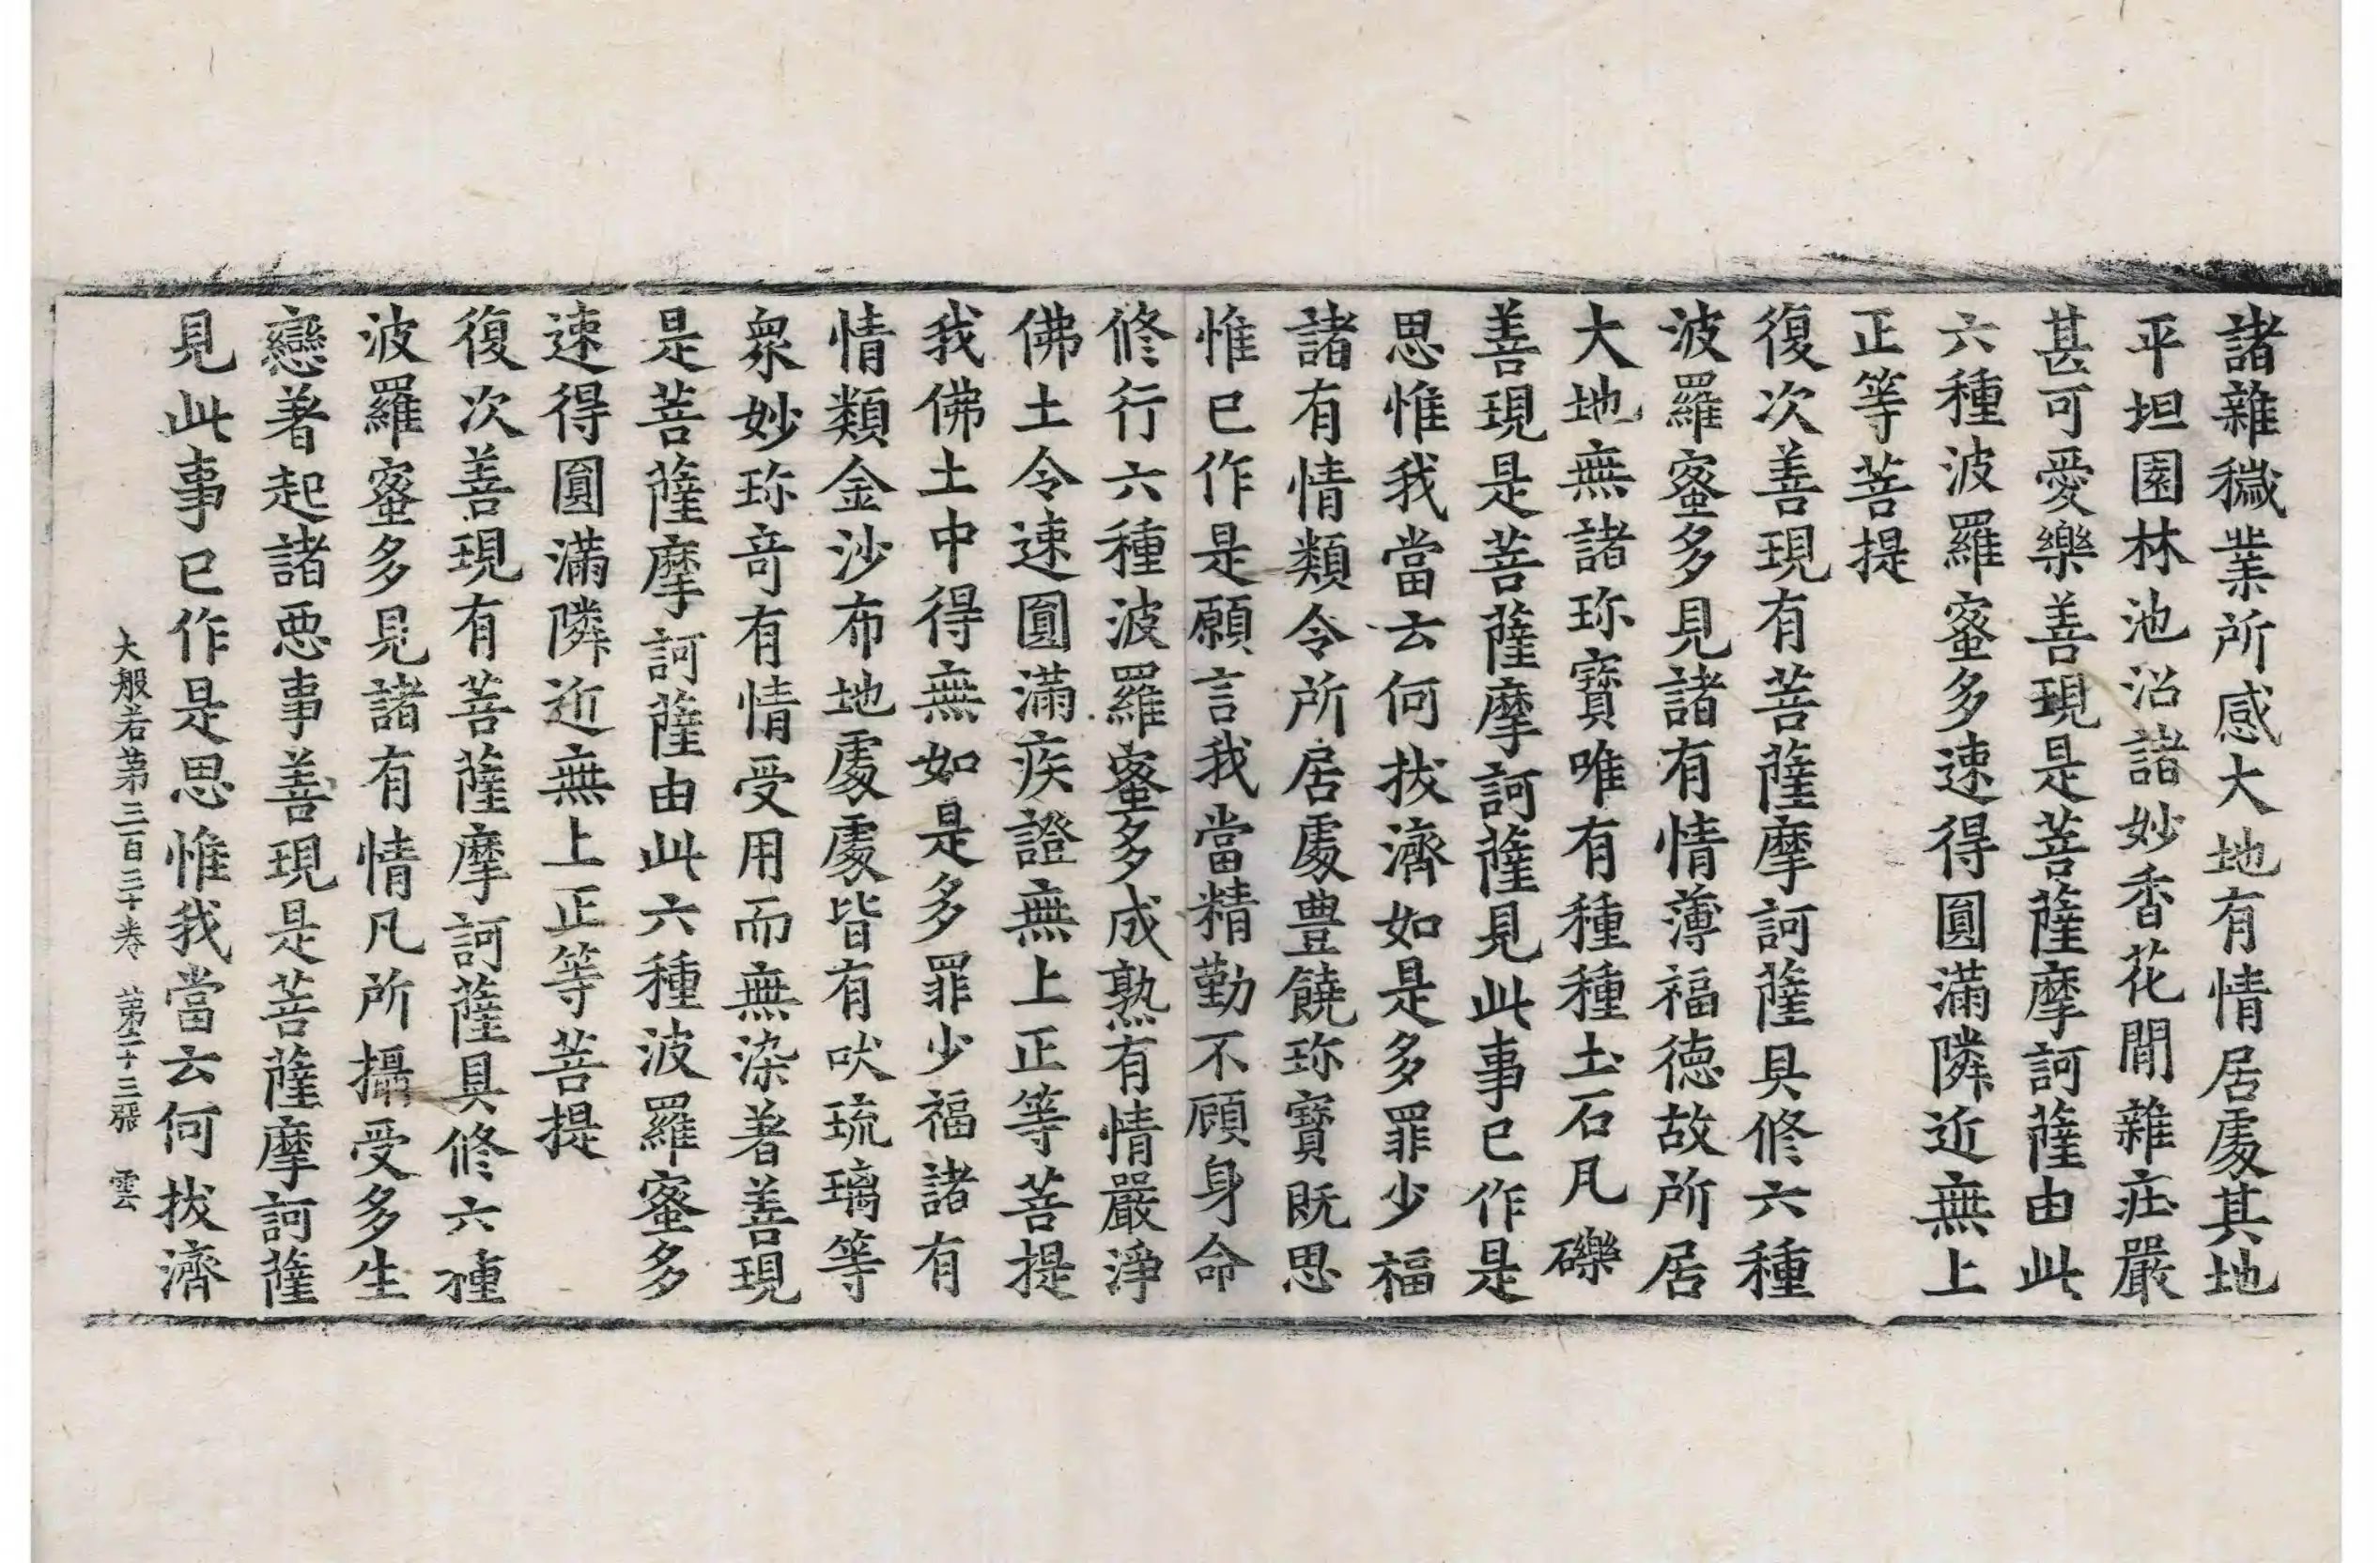 諸雜穢業所感大地有情居處其地
平坦園林池沼諸妙香花間雜莊嚴
甚可愛樂善現是菩薩摩訶薩由此
六種波羅蜜多速得圓滿隣近無上
正等菩提
復次善現有菩薩摩訶薩具修六種
波羅蜜多見諸有情薄福德故所居
大地無諸珎寶唯有種種土石凡礫
善現是菩薩摩訶薩見此事已作是
思惟我當云何拔濟如是多罪少福
諸有情類令所居處豊饒珎寶既思
惟已作是願言我當精勤不顧身命
修行六種波羅蜜多成熟有情嚴淨
佛土令速圓滿疾證無上正等菩提
我佛土中得無如是多罪少福諸有
情類金沙布地處處皆有吠琉璃等
衆妙珎竒有情受用而無染著善現
是菩薩摩訶薩由此六種波羅蜜多
速得圓滿隣近無上正等菩提
復次善現有菩薩摩訶薩具修六種
波羅蜜多見諸有情凡所攝受多生
戀著起諸惡事善現是菩薩摩訶薩
見此事已作是思惟我當云何拔濟
大般若第三百三十卷 第二十三張 雲